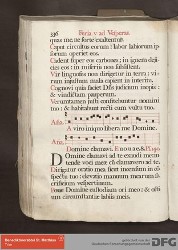 336 Feria v ad Vesperas
quia me, ne forte exaltentur.
Caput circuitus eorum: labor labiorum ip
sorum operiet eos.
Cadent super eos carbones, in ignem deji
cies eos: in miseriis non subsistent.
Vir linguosus non dirigetur in terra: vi
rum injustum mala capient in interitu.
Cognovi quia faciet Dñs judicium inopis:
& vindictam pauperum.
Verumtamen justi confitebuntur nomini
tuo: & habitabunt recti cum vultu tuo.
Ana.
A viro iniquo libera me Domine.
Ana.
Domine clamavi. E u o u a e
Domine clamavi ad te exaudi me: in
tende voci meæ cum clamavero ad te.
Dirigatur oratio mea sicut incensum in con
spectu tuo: elevatio manuum mearum sa
crificium vespertinum.
Pone Domine custodiam ori meo: & osti
um circumstantiæ labiis meis.
DFG